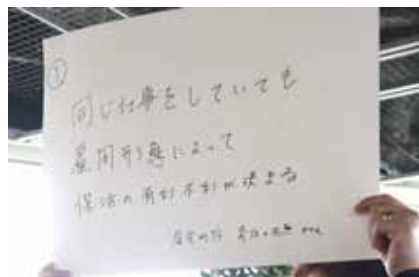 ①
同じ仕事をしていても
雇用形態によって
保活の有利不利が決まる